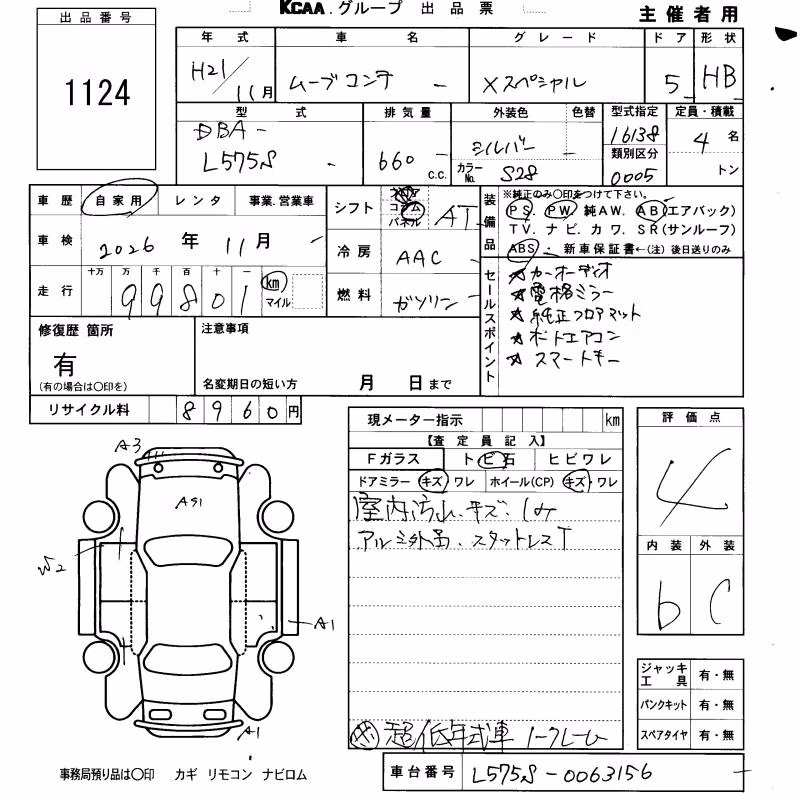 KCAA.グループ 出品票
主催者用
出品番号
1124
年式 車名 グレード ドア 形状
H21/11月 ムーブコンテ - Xスペシャル 5 HB
型式 排気量 外装色 色替 型式指定 定員・積載
DBA-
L575S - 660 c.c. シルバー - 16138 4名
カラーNo. S28 類別区分 0005 トン
車歴 自家用 レンタ 事業.営業車
車検 2026年11月 -
走行 十万 万 千 百 十 一
99801 km マイル
シフト コラム パネル AT
冷房 AAC
燃料 ガソリン
装備品 ※純正のみ〇印をつけて下さい。
PS. PW. 純AW. AB(エアバック)
TV. ナビ. カワ. SR(サンルーフ)
ABS ・ 新車保証書←(注) 後日送りのみ
セールスポイント
☆カーオーディオ
☆電格ミラー
☆純正フロアマット
☆オートエアコン
☆スマートキー
修復歴 箇所
有
(有の場合は〇印を)
注意事項
名変期日の短い方 月 日まで
リサイクル料 8960円
現メーター指示 km
【査定員記入】
Fガラス トビ石 ヒビワレ
ドアミラー キズ ワレ ホイール(CP) キズ ワレ
室内汚れ、キズ、しみ
アルミ外品・スタットレスT
超低年式車 ノークレーム
評価点
4
内装 外装
b C
A3
AS1
W2
A1
A1
ジャッキ工具 有・無
パンクキット 有・無
スペアタイヤ 有・無
事務局預り品は〇印 カギ リモコン ナビロム
車台番号 L575S-0063156 -